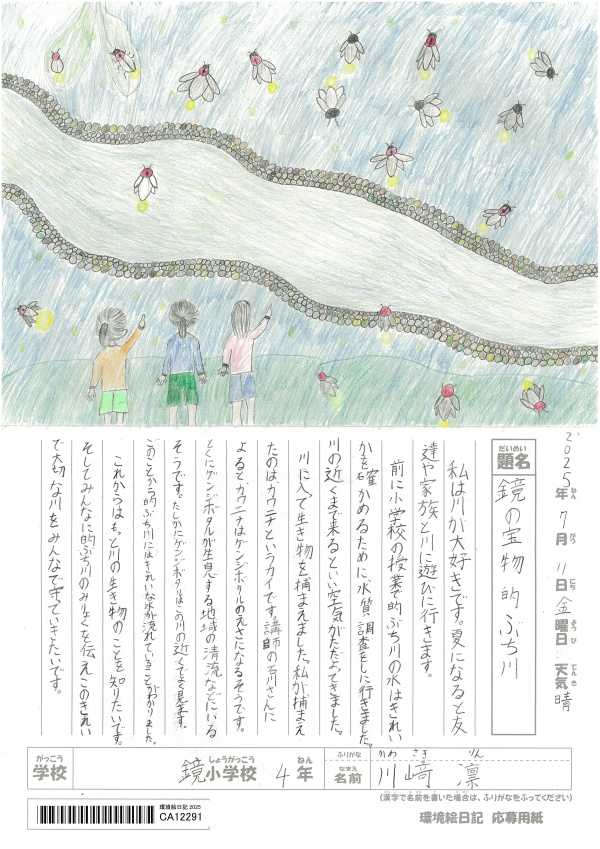 2025年ねん 7月がつ 11日にち 金曜日ようび 天気てんき 晴
題名だいめい 鏡の宝物 的ぶち川
私は川が大好きです。夏になると友
達や家族と川に遊びに行きます。
前に小学校の授業で的ぶち川の水はきれい
かを確かめるために、水質調査をしに行きました。
川の近くまで来るといい空気がただよってきました。
川に入って生き物を捕まえました。私が捕まえ
たのはカワニナというカイです。講師の石川さんに
よるとカワニナはゲンジボタルのえさになるそうです。
とくにゲンジボタルが生息する地域の清流などにいる
そうです。たしかにゲンジボタルはこの川の近くでよく見ます。
このことから的ぶち川にはきれいな水が流れていることがわかりました。
これからはもっと川の生き物のことを知りたいです。
そしてみんなに的ぶち川のみりょくを伝えこのきれい
で大切な川をみんなで守っていきたいです。
学校がっこう 鏡小学校しょうがっこう 4年ねん
ふりがな かわ さき りん
名前なまえ 川﨑 凛
(漢字で名前を書いた場合は、ふりがなをふってください)
環境絵日記 2025
CA12291
環境絵日記 応募用紙